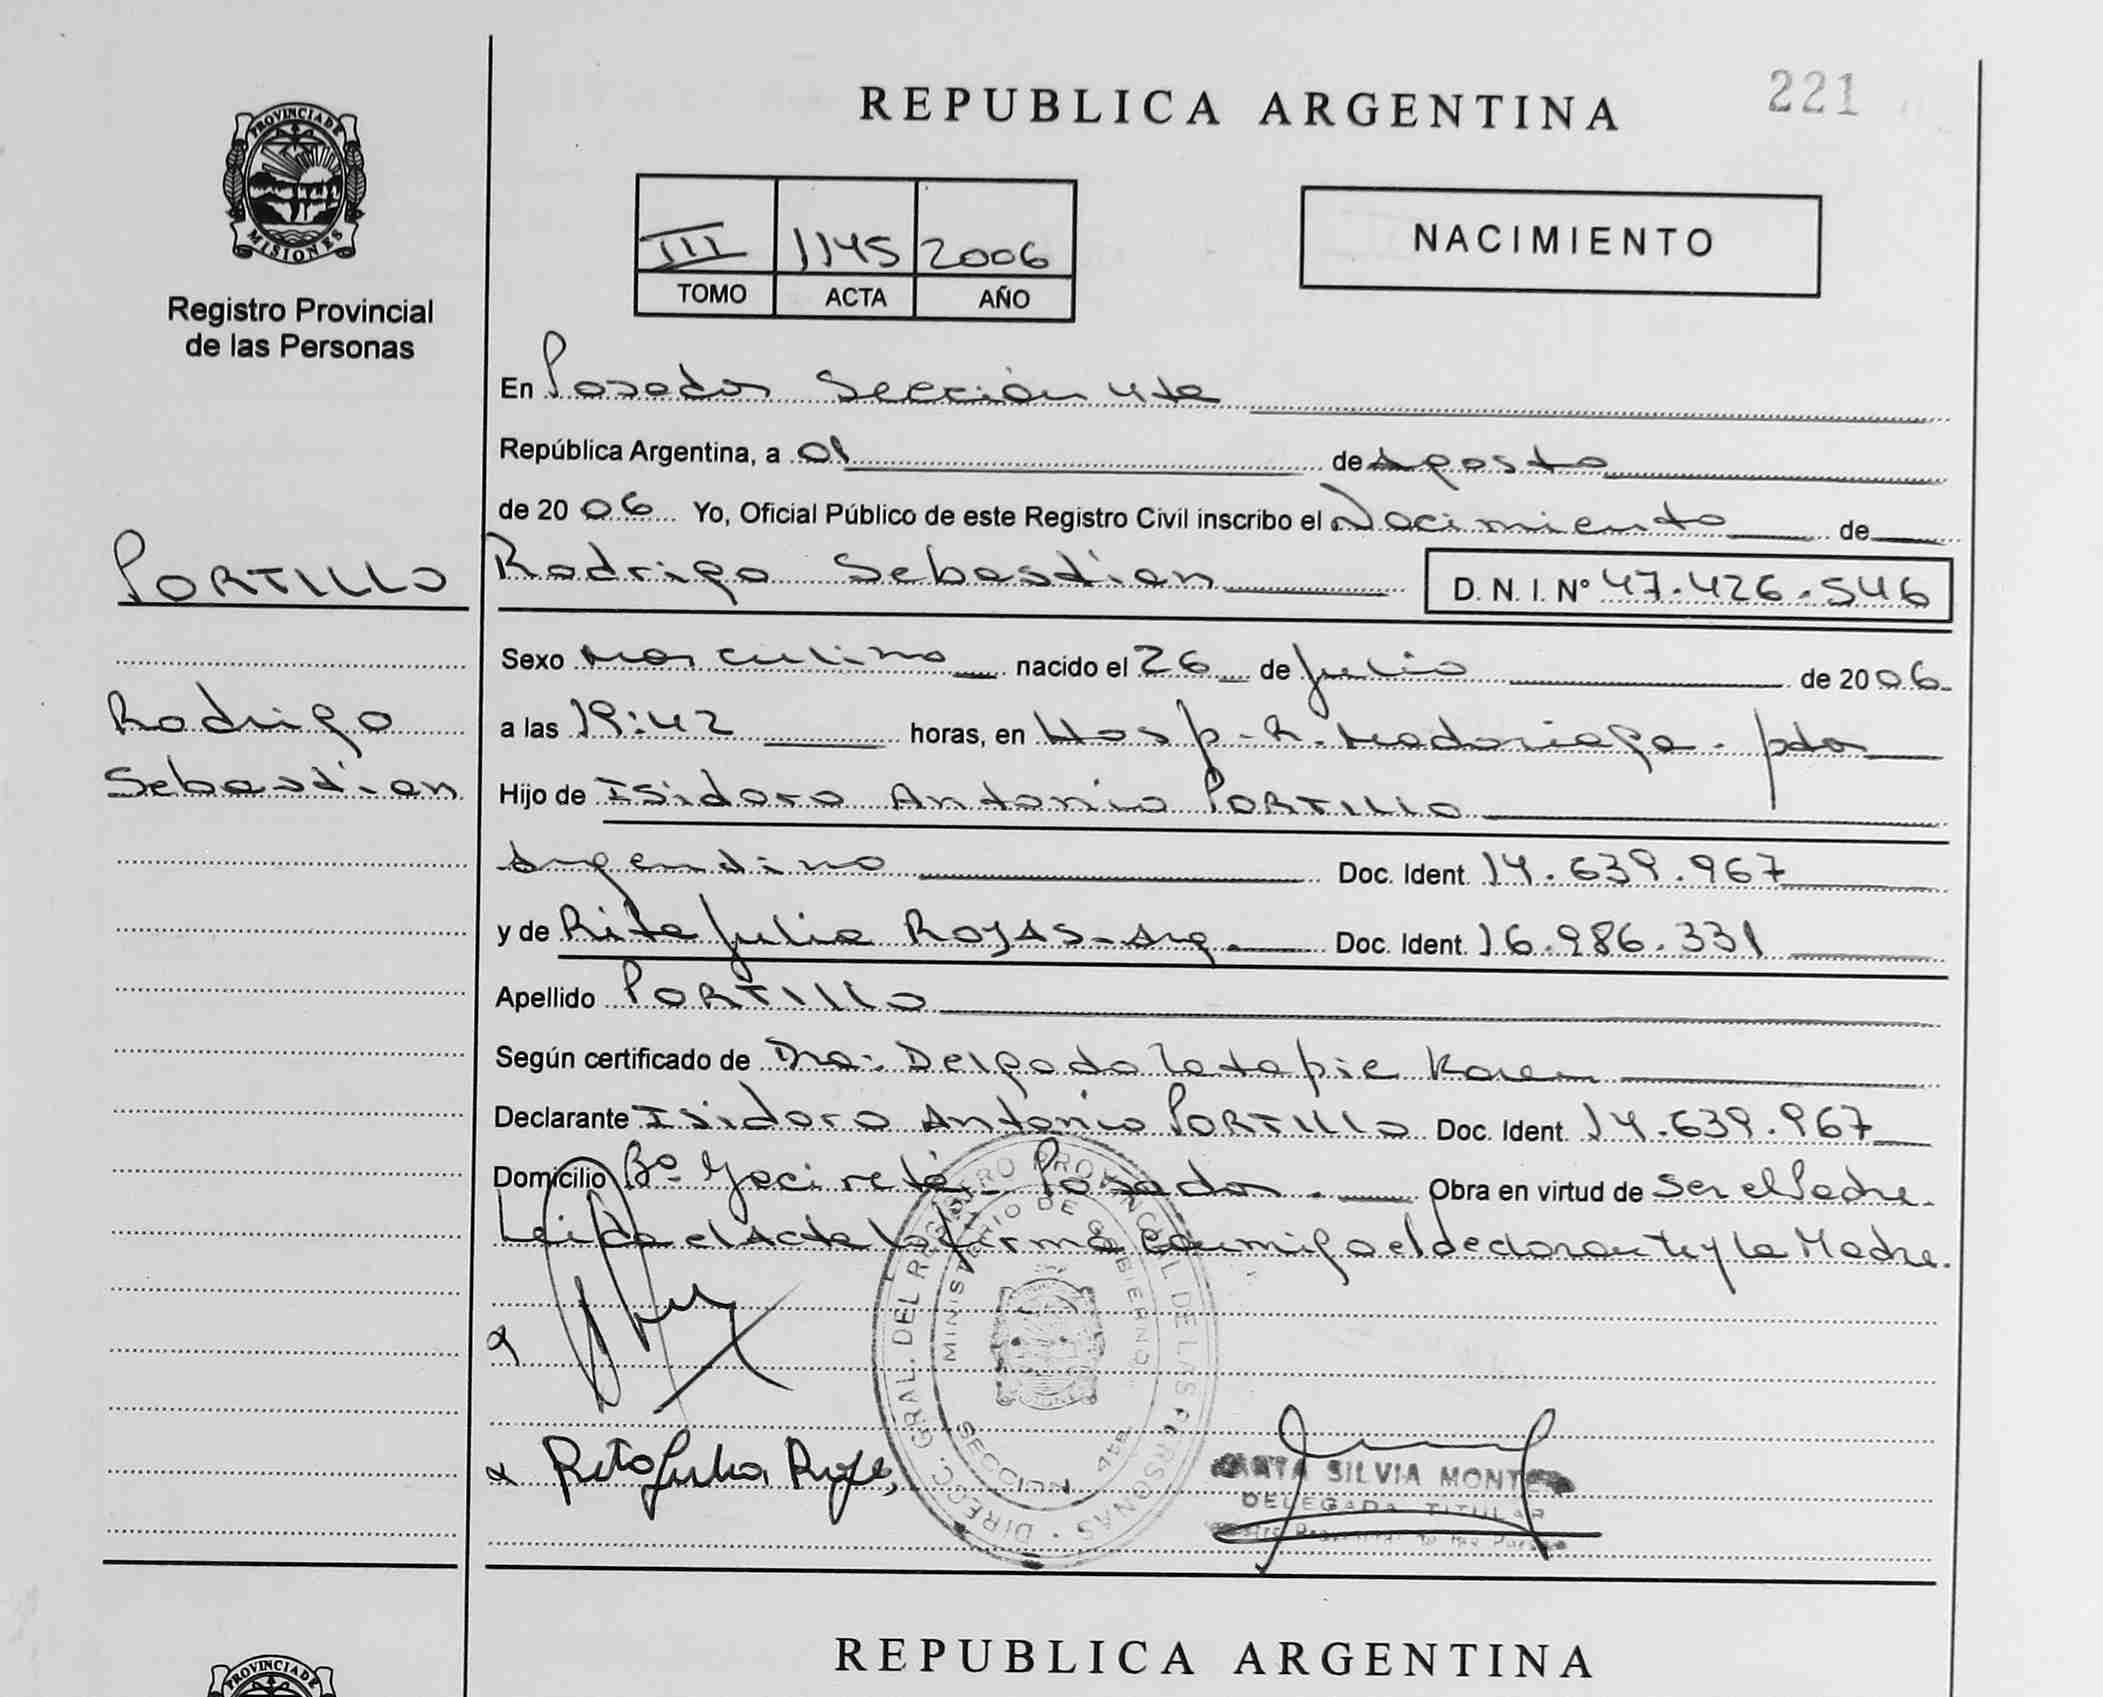 221
REPUBLICA ARGENTINA
PROVINCIA DE
MISIONES
Registro Provincial
de las Personas
III 1145 2006
TOMO ACTA AÑO
NACIMIENTO
En Posadas Sección 4ta
República Argentina, a 01 de Agosto
de 2006 Yo, Oficial Público de este Registro Civil inscribo el Nacimiento de
PORTILLO
Rodrigo Sebastian
Rodrigo Sebastian D. N. I. Nº 47.426.546
Sexo Masculino nacido el 26 de Julio de 2006
a las 19:42 horas, en Hosp. R. Madariaga - pdas
Hijo de Isidoro Antonio PORTILLO
Argentino Doc. Ident. 14.639.967
y de Rita Julia ROJAS - Arg. Doc. Ident. 16.986.331
Apellido PORTILLO
Según certificado de Dra: Delgado Karen
Declarante Isidoro Antonio PORTILLO Doc. Ident. 14.639.967
Domicilio Bº Yaciretá - Posadas. Obra en virtud de ser el Padre.
Leida el Acta la firma conmigo el declarante y la Madre.
Rita Julia Rojas
DIRECC. GRAL. DEL REGISTRO PROVINCIAL DE LAS PERSONAS
MINISTERIO DE GOBIERNO
SECCION 4ta.
SILVIA
DELEGADA TITULAR
REPUBLICA ARGENTINA
PROVINCIA DE